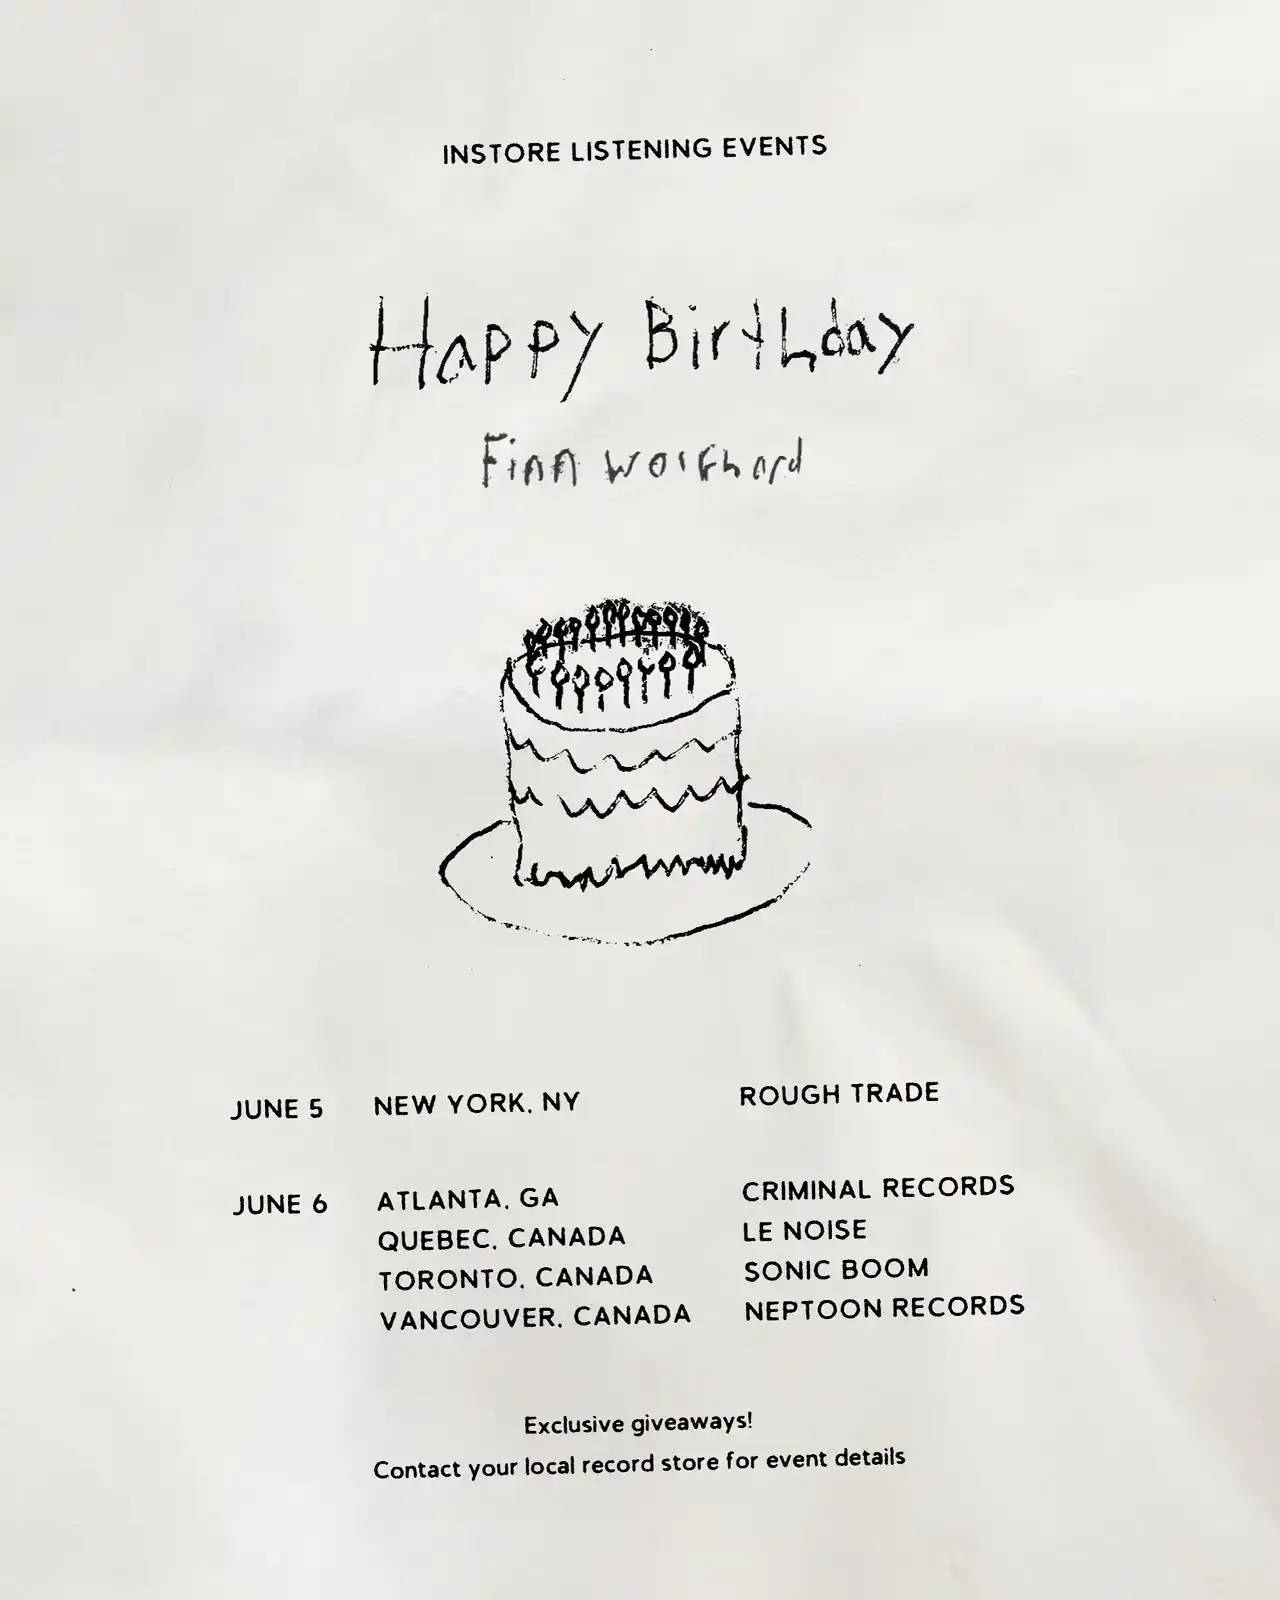 INSTORE LISTENING EVENTS
Happy Birthday
Finn Wolfhard
JUNE 5 NEW YORK, NY ROUGH TRADE
JUNE 6 ATLANTA, GA CRIMINAL RECORDS
QUEBEC, CANADA LE NOISE
TORONTO, CANADA SONIC BOOM
VANCOUVER, CANADA NEPTOON RECORDS
Exclusive giveaways!
Contact your local record store for event details